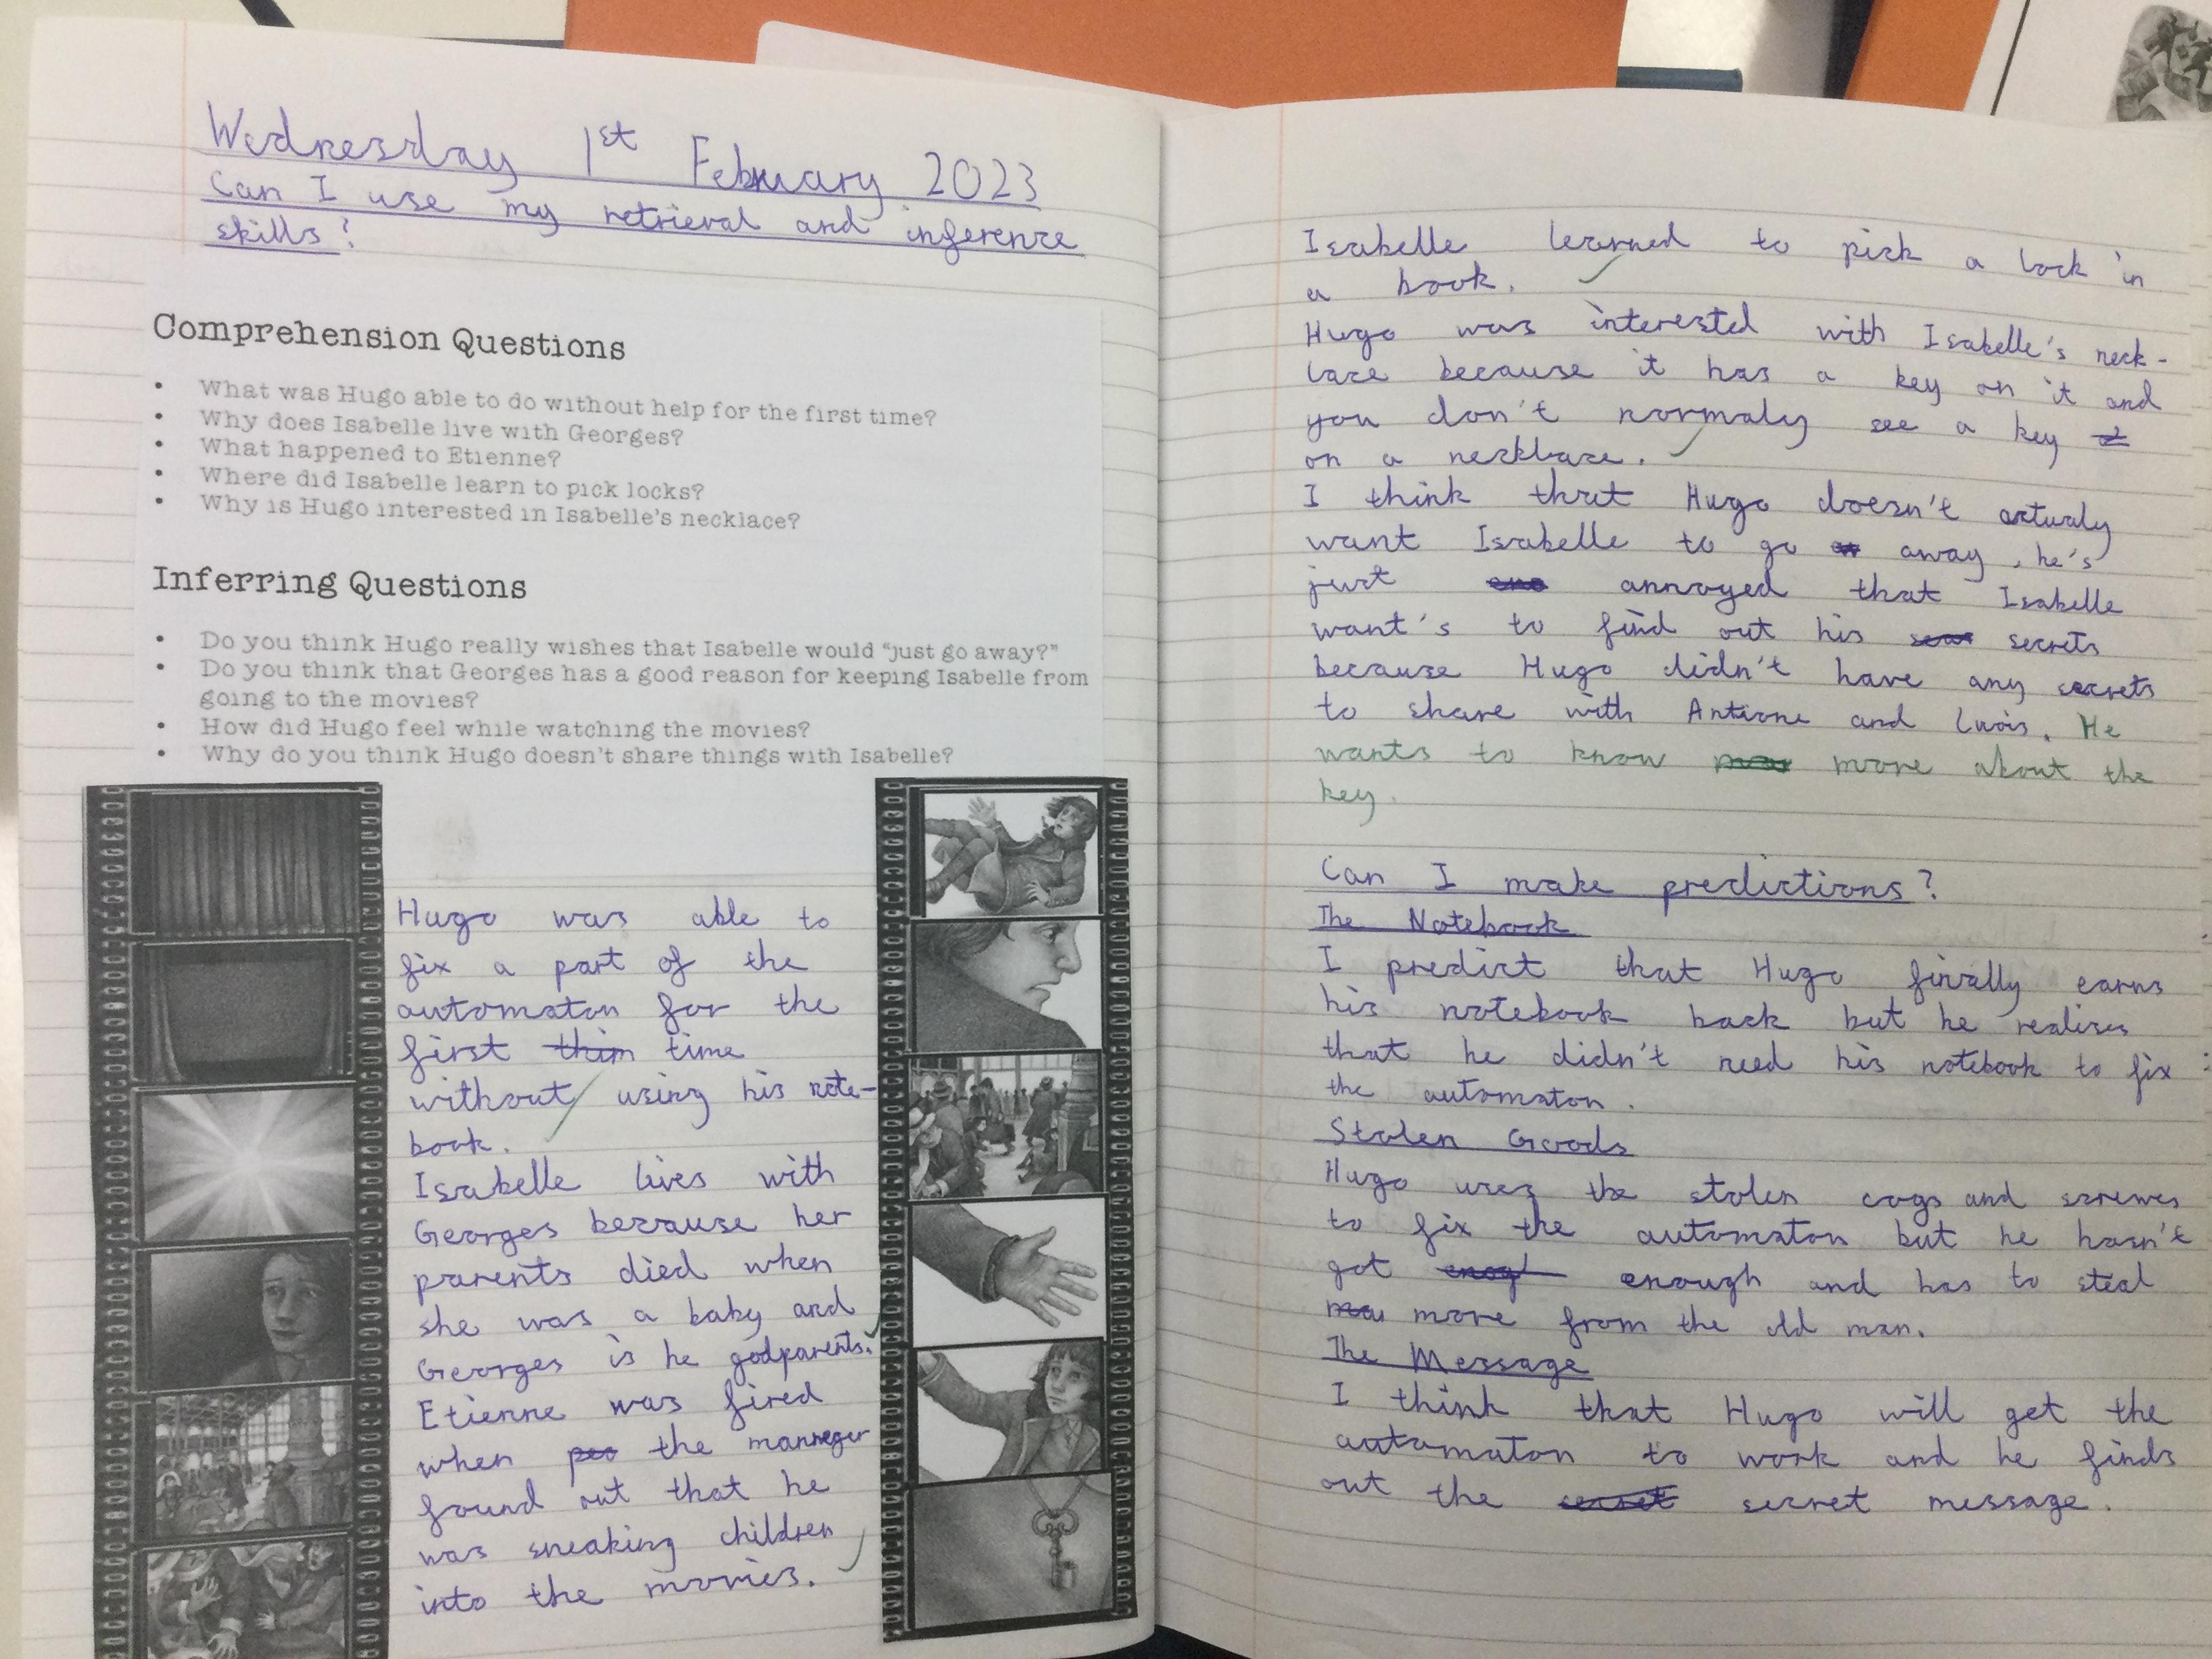 Wednesday 1st February 2023
Can I use my retrieval and inference
skills?
Comprehension Questions
• What was Hugo able to do without help for the first time?
• Why does Isabelle live with Georges?
• What happened to Etienne?
• Where did Isabelle learn to pick locks?
• Why is Hugo interested in Isabelle's necklace?
Inferring Questions
• Do you think Hugo really wishes that Isabelle would "just go away?"
• Do you think that Georges has a good reason for keeping Isabelle from
going to the movies?
• How did Hugo feel while watching the movies?
• Why do you think Hugo doesn't share things with Isabelle?
Hugo was able to
fix a part of the
automaton for the
first thim time
without using his note-
book.
Isabelle lives with
Georges because her
parents died when
she was a baby and
Georges is he godparents.
Etienne was fired
when the manneger
found out that he
was sneaking children
into the movies.
Isabelle learned to pick a lock in
a book.
Hugo was interested with Isabelle's neck-
lace because it has a key on it and
you don't normaly see a key
on a necklace.
I think that Hugo doesn't actualy
want Isabelle to go away, he's
just annoyed that Isabelle
want's to find out his secrets
because Hugo didn't have any secrets
to share with Antione and Luois. He
wants to know more about the
key.
Can I make predictions?
The Notebook
I predict that Hugo finally earns
his notebook back but he realises
that he didn't need his notebook to fix
the automaton.
Stolen Goods
Hugo uses the stolen cogs and screwes
to fix the automaton but he hasn't
got enough and has to steal
more from the old man.
The Message
I think that Hugo will get the
automaton to work and he finds
out the secret secret message.